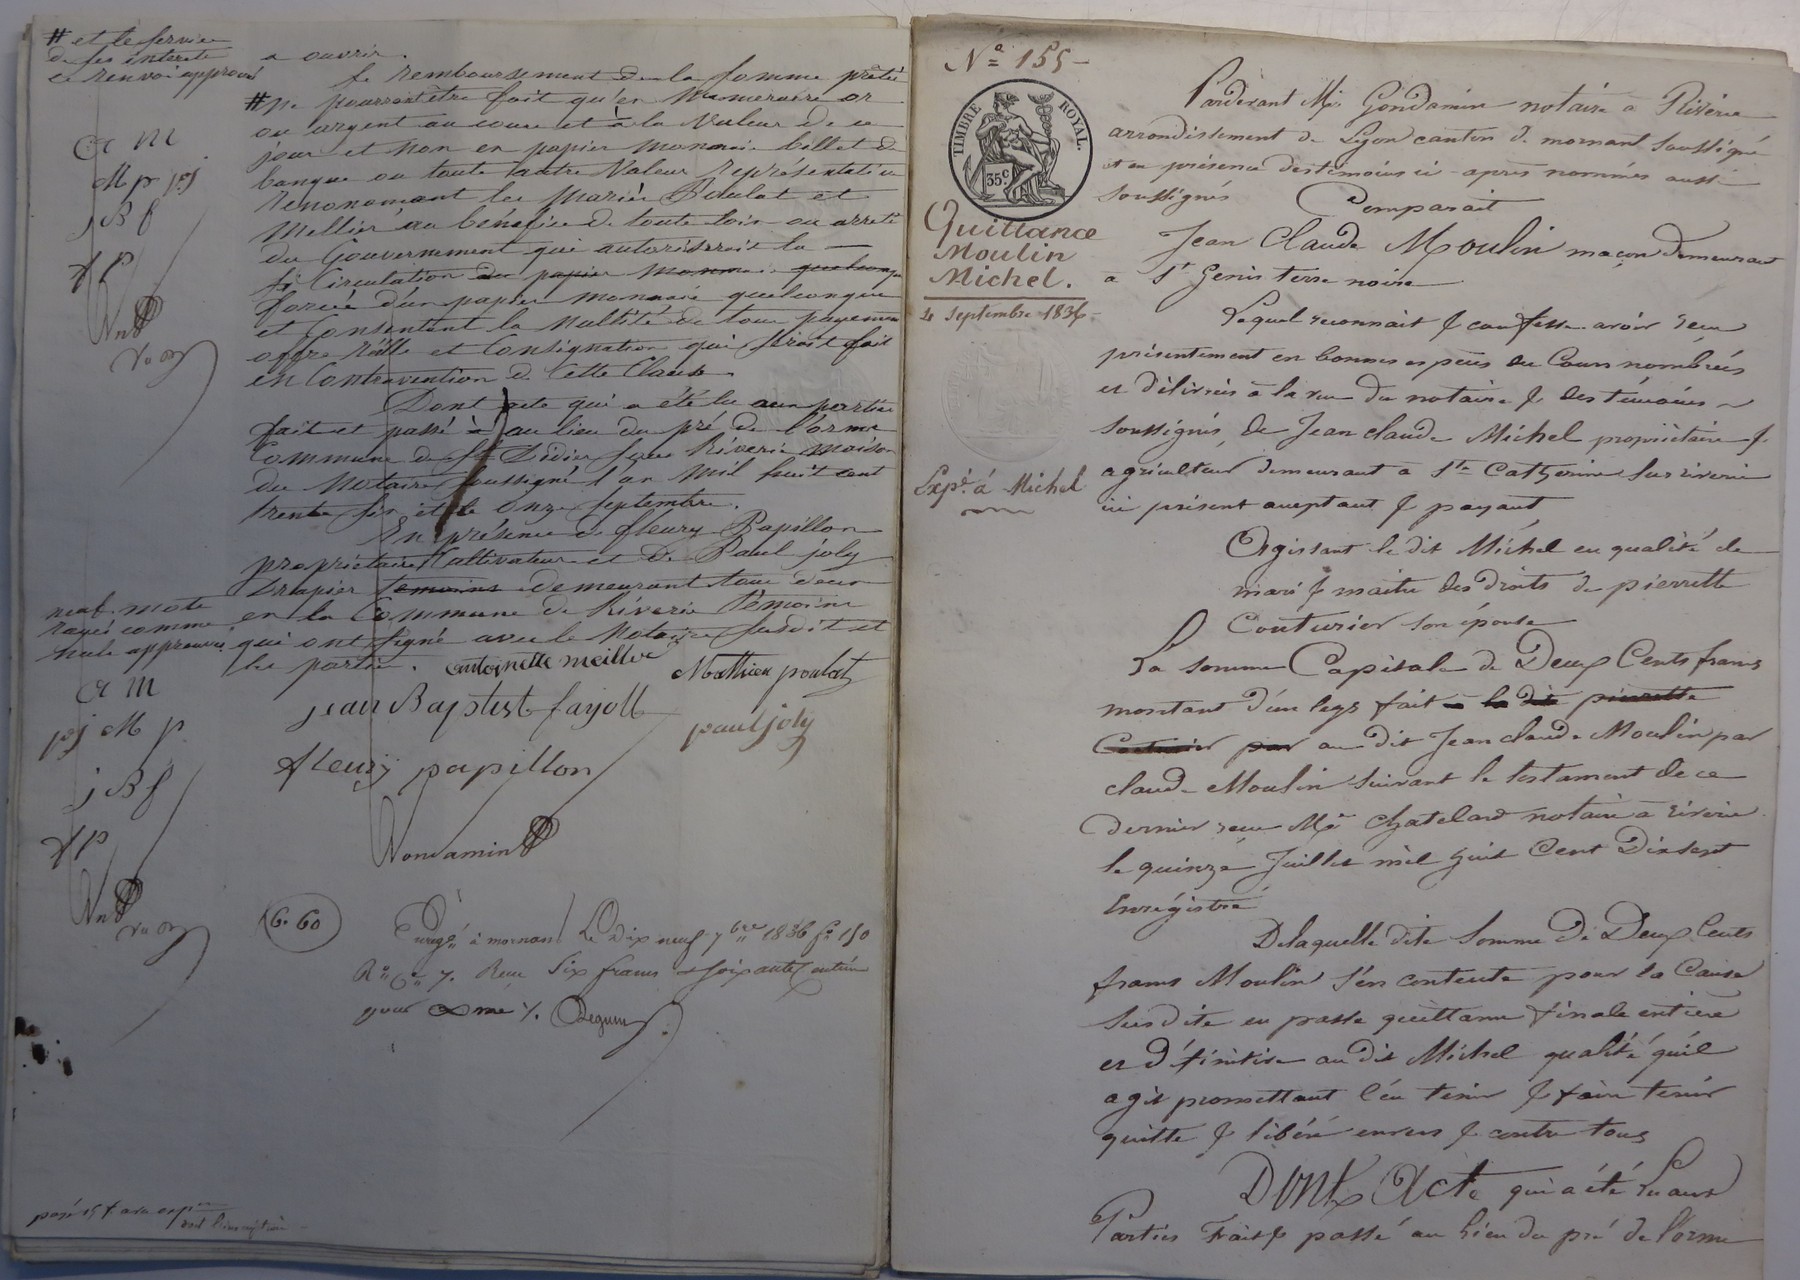 # et le service
de ses interets
ce renvoi approuvé
a m
M p p j
j B f
f p
a ouvrir.
Le remboursement de la somme prêtée
# ne pourront être fait qu'en numeraire or
ou argent au cours et à la Valeur de ce
jour et non en papier monnaie billet de
banque ou toute autre Valeur représentative
renonomant les Mariés Poulat et
Mellier au bénéfice de toute lois ou arreté
du Gouvernement qui autoriserait la
Circulation du papier monnaie quelconque
forcée d'un papier monnaie quelconque
et Consentant la Nullité de tous payement
offre réelle et Consignation qui serait fait
en Contravention de Cette Clause
Dont acte qui a été lu aux parties
fait et passé à au lieu du pré de l'orme
Commune de St Didier sous Riverie maison
du Notaire soussigné l'an Mil huit cent
trente six et le onze septembre.
En présence de fleury Papillon
propriétaire Cultivateur et de Paul joly
Drapier temoins demeurant tous deux
en la Commune de Riverie Témoins
qui ont signé avec le Notaire susdit et
les parties.
neuf mots
rayés comme
nuls approuvés
a m
p j M p
j B f
f p
antoinette meiller Mathieu poulat
jean Baptist fayolle
paul joly
fleury papillon
Gondamin
6. 60
Enregé à mornant Le Dix neuf 7bre 1836 fo 150
Ro Co 7. Reçu Six francs soixante centimes
pour
N° 155
TIMBRE ROYAL.
35 c.
Quittance
Moulin
Michel.
4 Septembre 1836
Expé. à Michel
Pardevant Me Gondamin notaire a Riverie
arrondissement de Lyon canton de mornant soussigné
et en présence des témoins ci-apres nommés aussi
soussignés Comparait
Jean Claude Moulin maçon demeurant
a St Genis terre noire
Lequel reconnait & confesse avoir recu
présentement en bonnes espèces du Cours nombrées
et délivrées à la vue du notaire & des témoins
soussignés, de Jean claude Michel propriétaire &
agriculteur demeurant a Ste Catherine sur riverie
ici présent aceptant & payant
Agissant le dit Michel en qualité de
mari & maitre des droits de pierrette
Couturier son épouse
La somme Capitale de Deux Cents francs
montant d'un legs fait a la dite pierrette
Couturier par au dit Jean claude Moulin par
claude Moulin suivant le testament de ce
dernier recu Me Chatelard notaire à riverie
le quinze Juillet mil huit Cent Dix sept
Enrégistré
De laquelle dite Somme de Deux Cents
francs Moulin s'en contente pour la Cause
susdite en passe quittance finale entière
et définitive au dit Michel qualité qu'il
agit promettant l'en tenir & faire tenir
quitte & libéré envers & contre tous
DONT Acte qui a été Lu aux
Parties Fait & passé au lieu du pré de l'orme